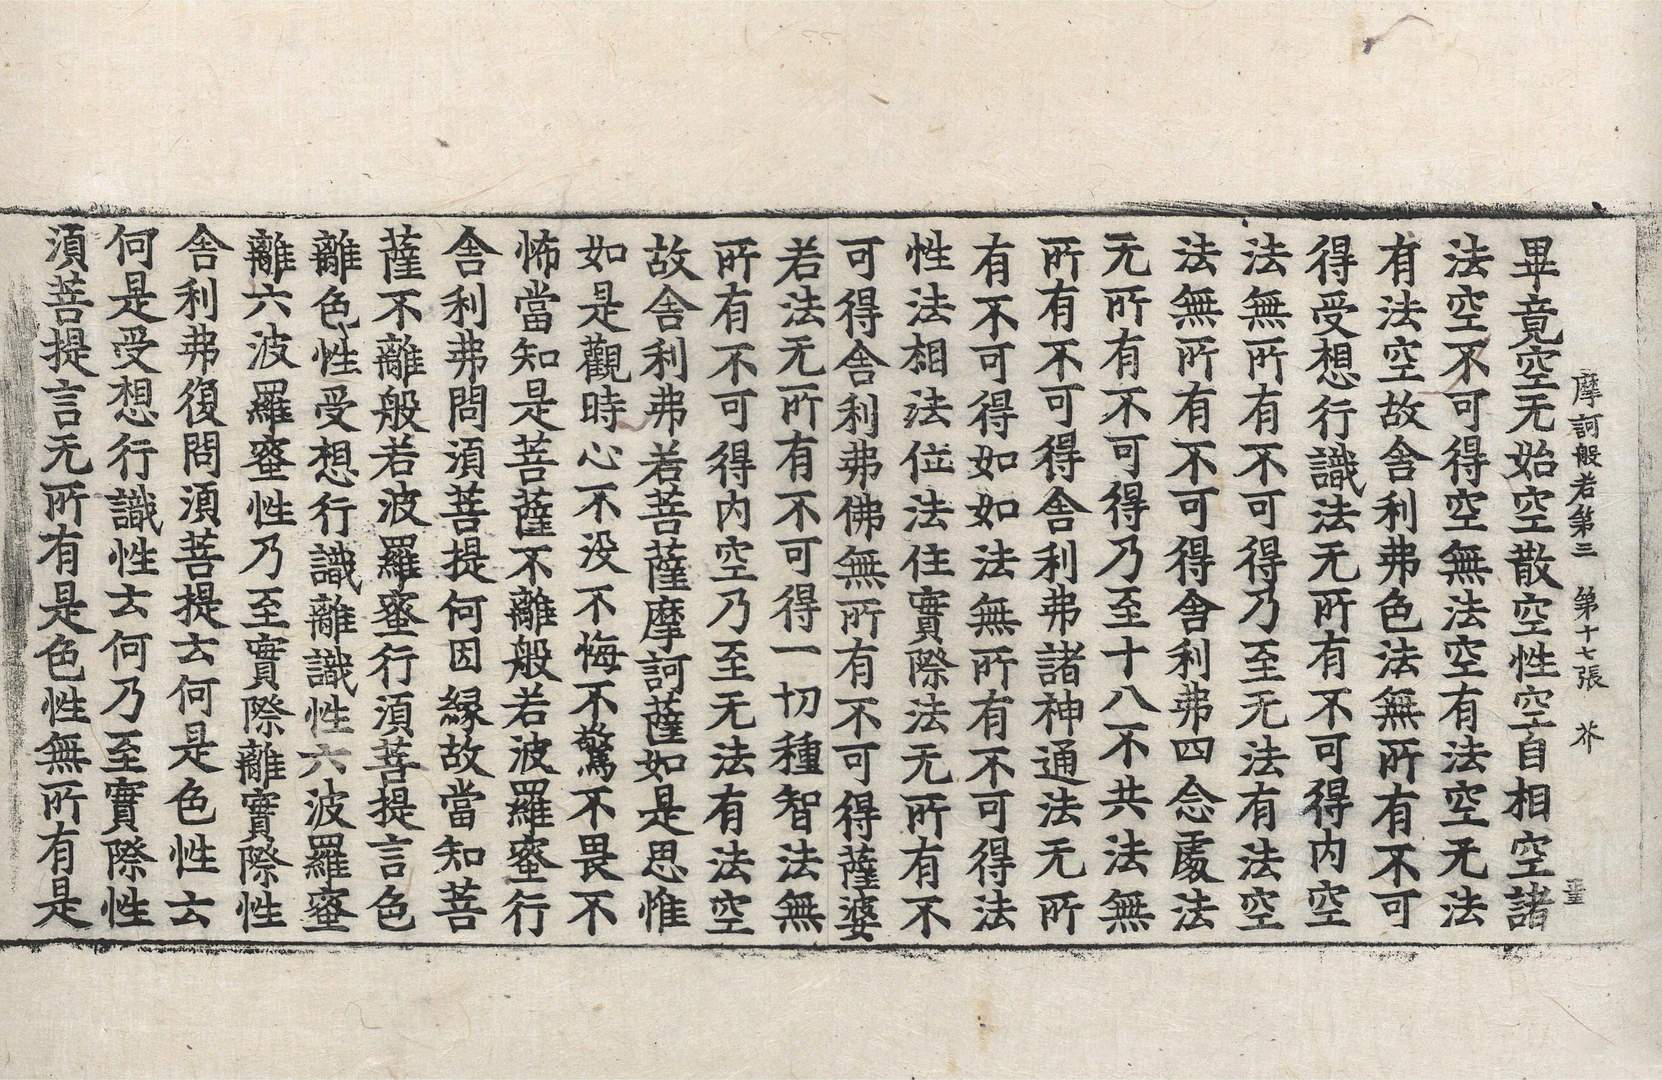 摩訶般若第三 第十七張 芥
畢竟空无始空散空性空自相空諸
法空不可得空無法空有法空无法
有法空故舍利弗色法無所有不可
得受想行識法无所有不可得内空
法無所有不可得乃至无法有法空
法無所有不可得舍利弗四念處法
无所有不可得乃至十八不共法無
所有不可得舍利弗諸神通法无所
有不可得如如法無所有不可得法
性法相法位法住實際法无所有不
可得舍利弗佛無所有不可得薩婆
若法无所有不可得一切種智法無
所有不可得内空乃至无法有法空
故舍利弗若菩薩摩訶薩如是思惟
如是觀時心不没不悔不驚不畏不
怖當知是菩薩不離般若波羅蜜行
舍利弗問湏菩提何因縁故當知菩
薩不離般若波羅蜜行湏菩提言色
離色性受想行識離識性六波羅蜜
離六波羅蜜性乃至實際離實際性
舍利弗復問湏菩提云何是色性云
何是受想行識性云何乃至實際性
湏菩提言无所有是色性無所有是